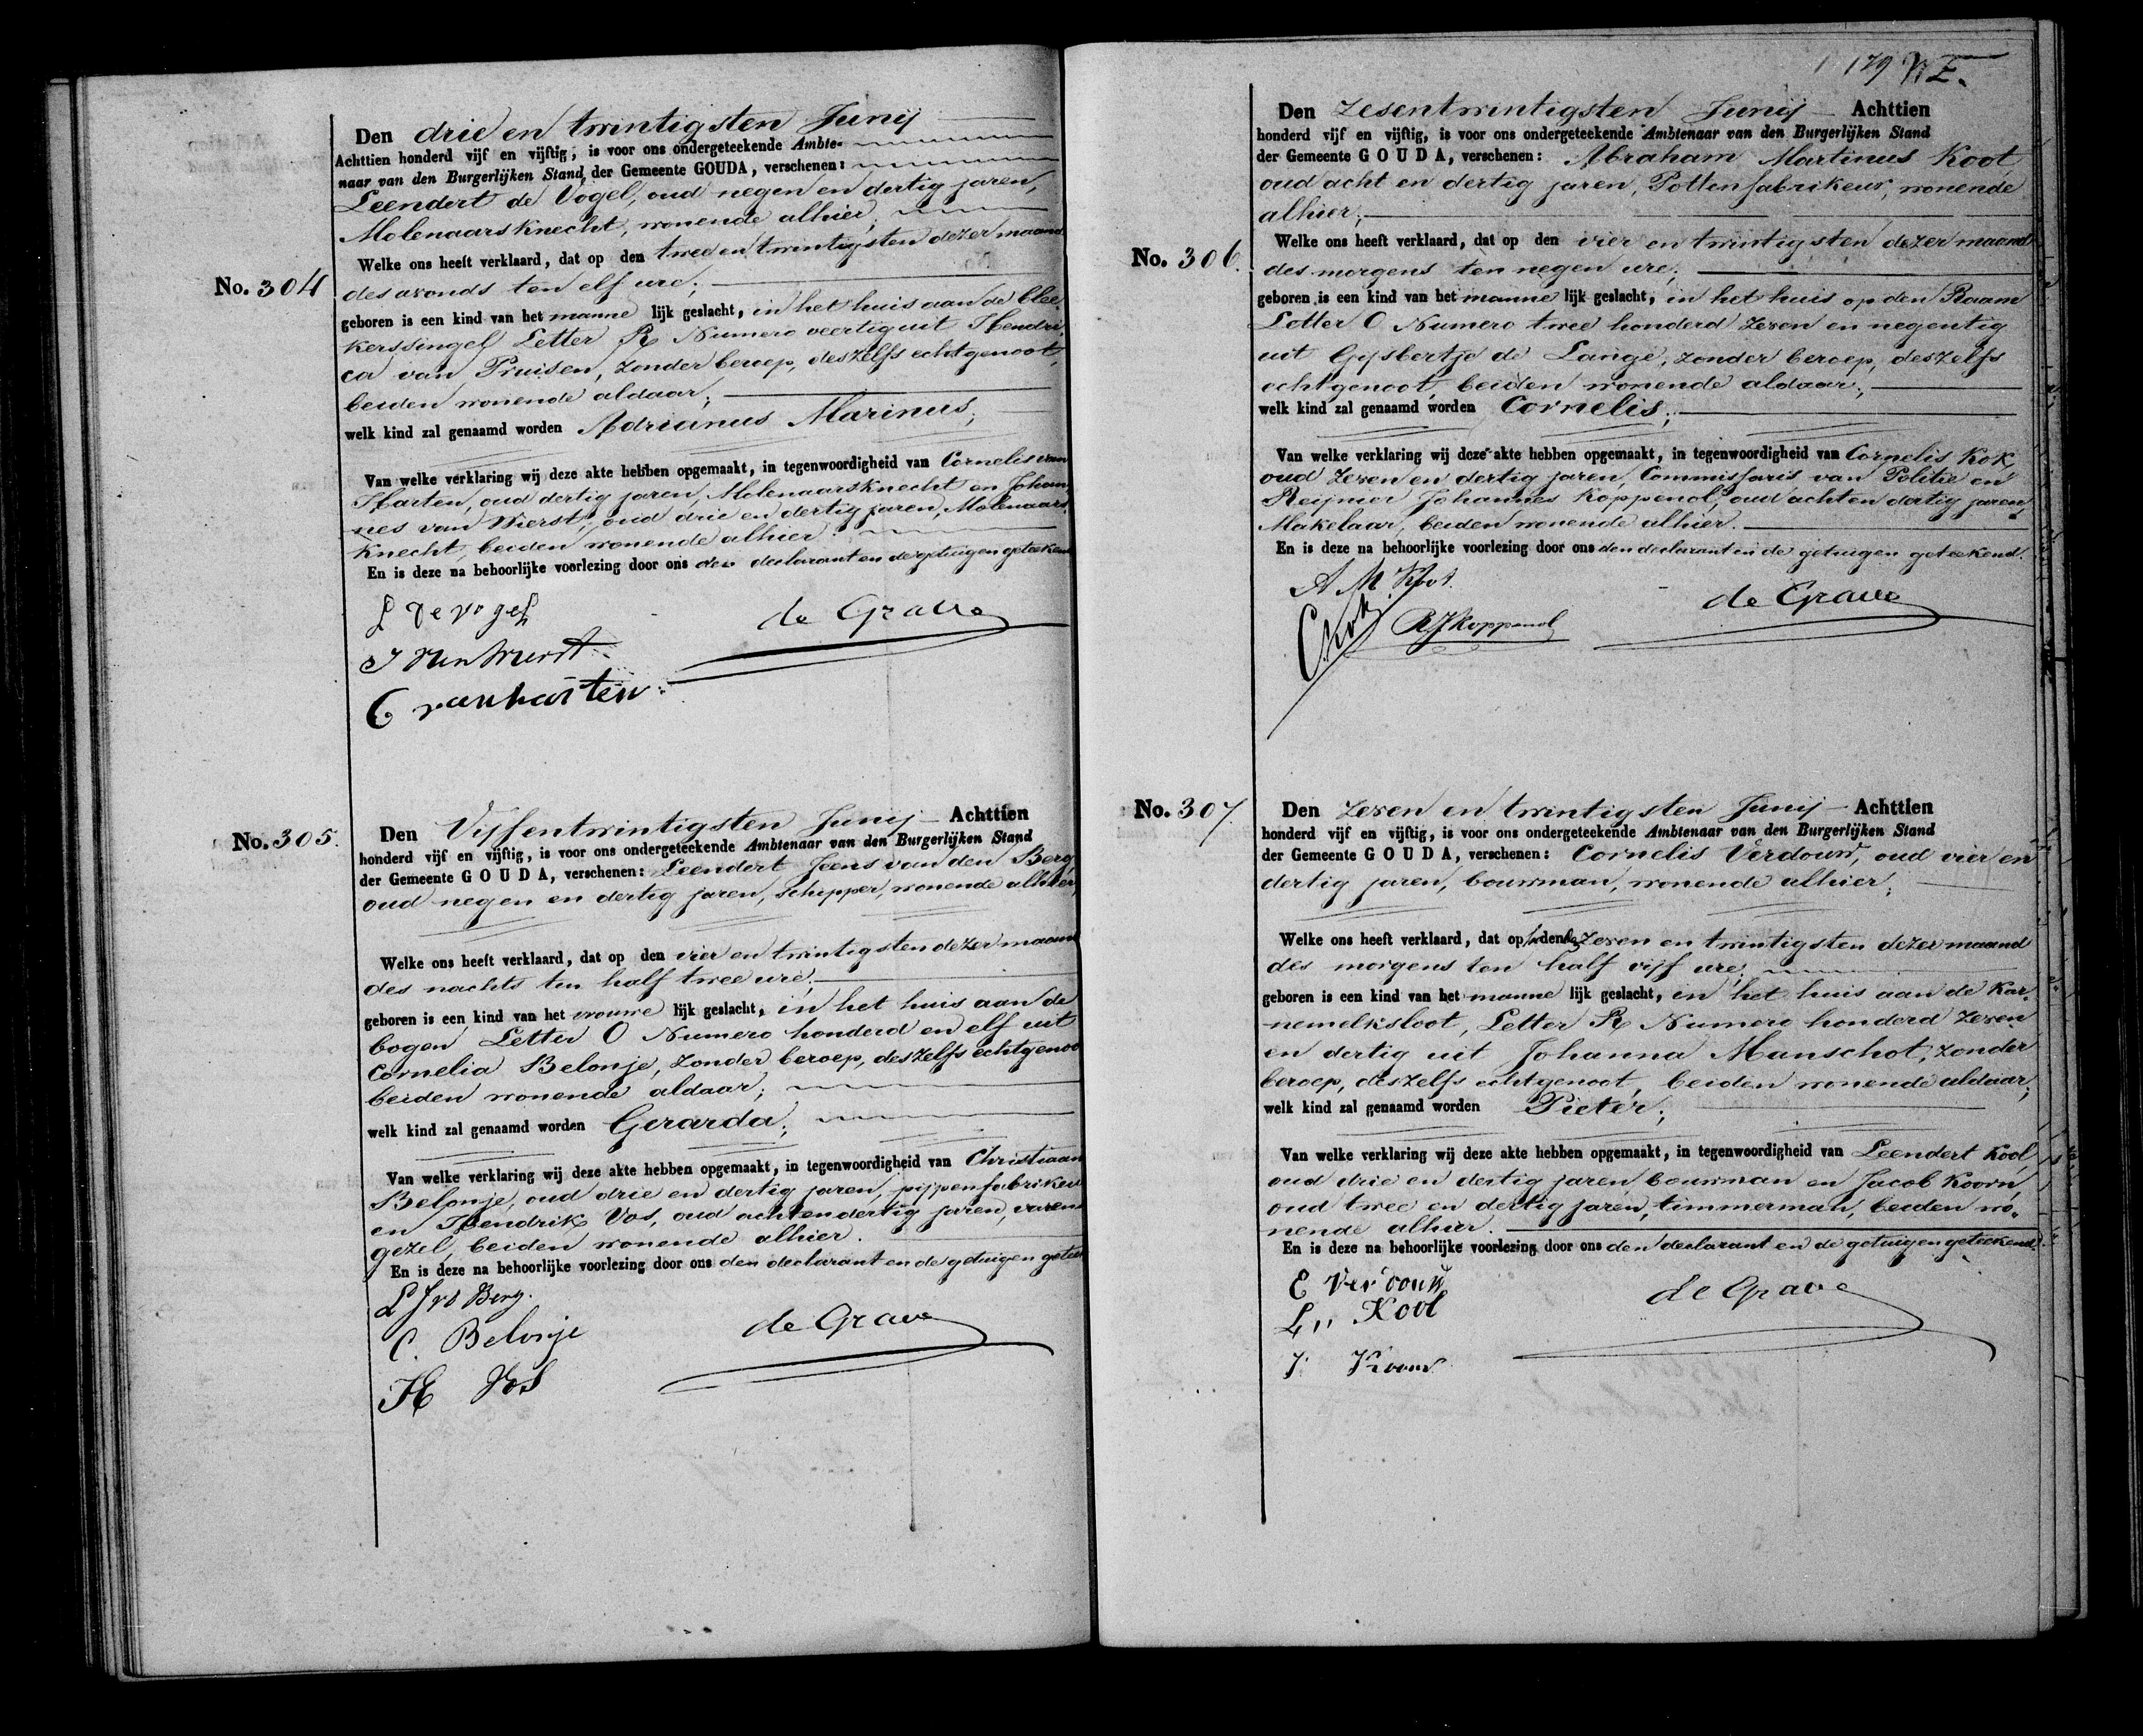 No. 304
Den drie en twintigsten Junij
Achttien honderd vijf en vijftig, is voor ons ondergeteekende Ambte-
naar van den Burgerlijken Stand, der Gemeente GOUDA, verschenen:
Leendert de Vogel, oud negen en dertig jaren,
Molenaarsknecht, wonende alhier;
Welke ons heeft verklaard, dat op den twee en twintigsten dezer maand
des avonds ten elf ure;
geboren is een kind van het manne lijk geslacht, in het huis aan de blee-
kerssingel Letter R Numero veertig uit Hendri
ca van Pruisen, zonder beroep, deszelfs echtgenoot,
beiden wonende aldaar;
welk kind zal genaamd worden Adrianus Marinus;
Van welke verklaring wij deze akte hebben opgemaakt, in tegenwoordigheid van Cornelis van
Harten, oud dertig jaren, Molenaarsknecht en Johan
nes van Wierst, oud drie en dertig jaren, Molenaars
knecht, beiden wonende alhier.
En is deze na behoorlijke voorlezing door ons den declarant en de getuigen geteekend
L de vogel
de Grave
C van harten
No. 305.
Den Vijfentwintigsten Junij Achttien
honderd vijf en vijftig, is voor ons ondergeteekende Ambtenaar van den Burgerlijken Stand
der Gemeente GOUDA, verschenen: Leendert Jeens van den Berg,
oud negen en dertig jaren, schipper, wonende alhier,
Welke ons heeft verklaard, dat op den vier en twintigsten dezer maand
des nachts ten half twee ure;
geboren is een kind van het vrouwe lijk geslacht, in het huis aan de
bogen Letter O Numero honderd en elf uit
Cornelia Belonje, zonder beroep, deszelfs echtgenoo
beiden wonende aldaar;
welk kind zal genaamd worden Gerarda;
Van welke verklaring wij deze akte hebben opgemaakt, in tegenwoordigheid van Christiaan
Belonje, oud drie en dertig jaren, pijpenfabrikeu
en Hendrik Vos, oud achtendertig jaren, varens
gezel, beiden wonende alhier.
En is deze na behoorlijke voorlezing door ons den declarant en de getuigen getee
L J vd Berg.
C. Belonje
de Grave
H Vos
179
No. 306.
Den Zesentwintigsten Junij Achttien
honderd vijf en vijftig, is voor ons ondergeteekende Ambtenaar van den Burgerlijken Stand
der Gemeente GOUDA, verschenen: Abraham Martinus Koot,
oud acht en dertig jaren, Pottenfabrikeur, wonende
alhier;
Welke ons heeft verklaard, dat op den vier en twintigsten dezer maand
des morgens ten negen ure;
geboren is een kind van het manne lijk geslacht, in het huis op den Raam
Letter O Numero twee honderd zeven en negentig
uit Gijsbertje de Lange, zonder beroep, deszelfs
echtgenoot, beiden wonende aldaar;
welk kind zal genaamd worden Cornelis;
Van welke verklaring wij deze akte hebben opgemaakt, in tegenwoordigheid van Cornelis Kok,
oud zeven en dertig jaren, Commissaris van Politie en
Reijnier Johannes Koppenol, oud acht en dertig jaren,
Makelaar, beiden wonende alhier.
En is deze na behoorlijke voorlezing door ons den declarant en de getuigen geteekend.
A M Koot.
de Grave
CKok
RJKoppenol
No. 307.
Den Zeven en twintigsten Junij Achttien
honderd vijf en vijftig, is voor ons ondergeteekende Ambtenaar van den Burgerlijken Stand
der Gemeente GOUDA, verschenen: Cornelis Verdouw, oud vier en
dertig jaren, bouwman, wonende alhier;
Welke ons heeft verklaard, dat op heden den Zeven en twintigsten dezer maand
des morgens ten half vijf ure;
geboren is een kind van het manne lijk geslacht, in het huis aan de Kar-
nemelksloot, Letter R Numero honderd zeven
en dertig uit Johanna Manschot, zonder
beroep, deszelfs echtgenoot, beiden wonende aldaar;
welk kind zal genaamd worden Pieter;
Van welke verklaring wij deze akte hebben opgemaakt, in tegenwoordigheid van Leendert Kool,
oud drie en dertig jaren, bouwman en Jacob Koorn,
oud twee en dertig jaren, timmerman, beiden wo-
nende alhier.
En is deze na behoorlijke voorlezing door ons den declarant en de getuigen geteekend.
C Verdouw
de Grave
L,, Kool
J Koorn